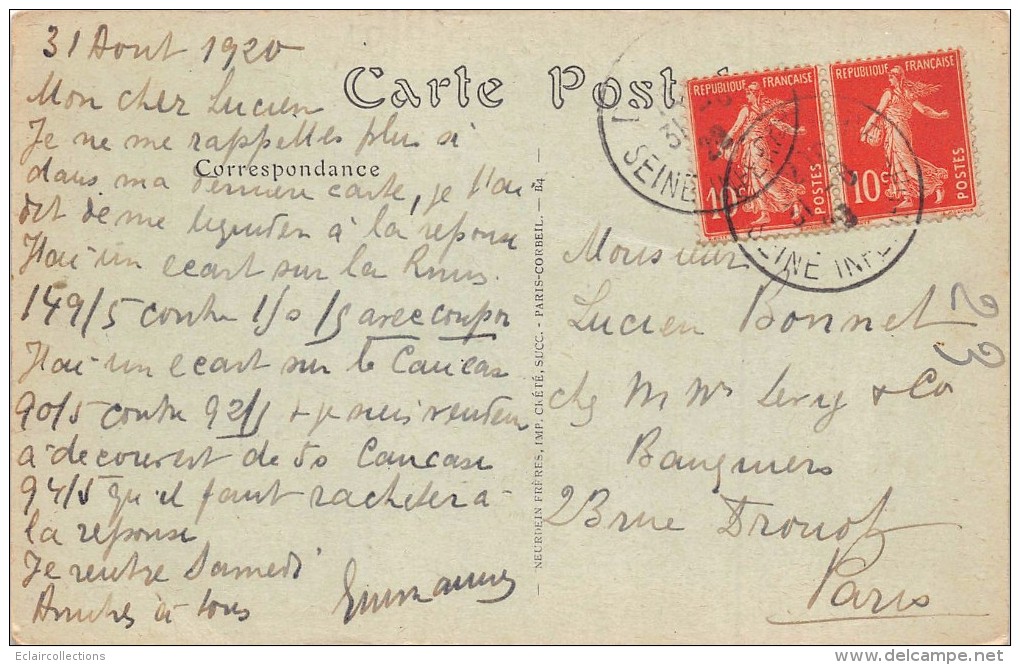 31 Aout 1920
Carte Postale
Mon cher Lucien
Je ne me rappelles plus si
Correspondance
dans ma derniere carte, je t'ai
dit de me liquider à la reponse
J'ai un ecart sur la
149/5 contre 150/5 avec coupon
J'ai un ecart sur le Caucase
90/5 contre 92/5 + je suis vendeur
a decouvert de 50 Caucase
94/5 qu'il faut racheter à
la reponse
Je rentre Samedi
à tous
NEURDEIN FRÈRES, IMP. CRÉTÉ, SUCC. - PARIS-CORBEIL. - B4
REPUBLIQUE FRANÇAISE
10
POSTES
REPUBLIQUE FRANÇAISE
10c
POSTES
SEINE INFRE
SEINE INFRE
Monsieur
Lucien Bonnet
chez M Mrs Levy & Co
Banquiers
23 rue Drouot
Paris
23
Eclaircollections
www.delcampe.net